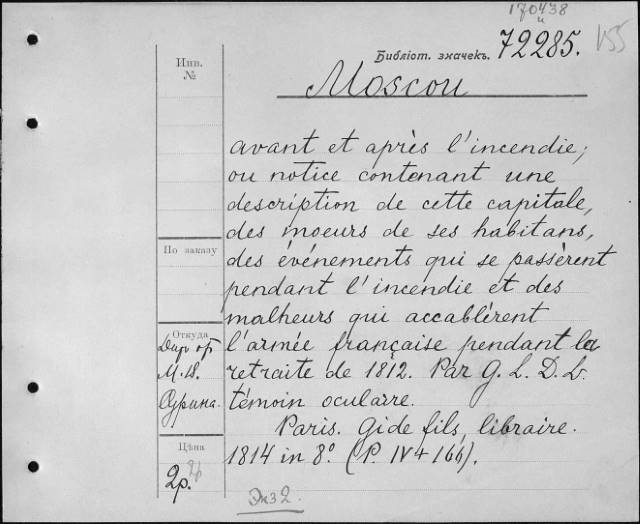 170438
и
Библіот. значекъ. 72285.
V55
Moscou
Инв.
№
avant et après l'incendie;
ou notice contenant une
description de cette capitale,
des moeurs de ses habitans,
По заказу
des événements qui se passèrent
pendant l'incendie et des
malheurs qui accablèrent
Откуда
Даръ
М.В.
Сурина.
l'armée française pendant la
retraite de 1812. Par G. L. D. L.
témoin oculaire.
Paris. Gide fils, libraire.
1814 in 8º. (P. IV + 166).
Цѣна
2р.
2р
Экз 2.